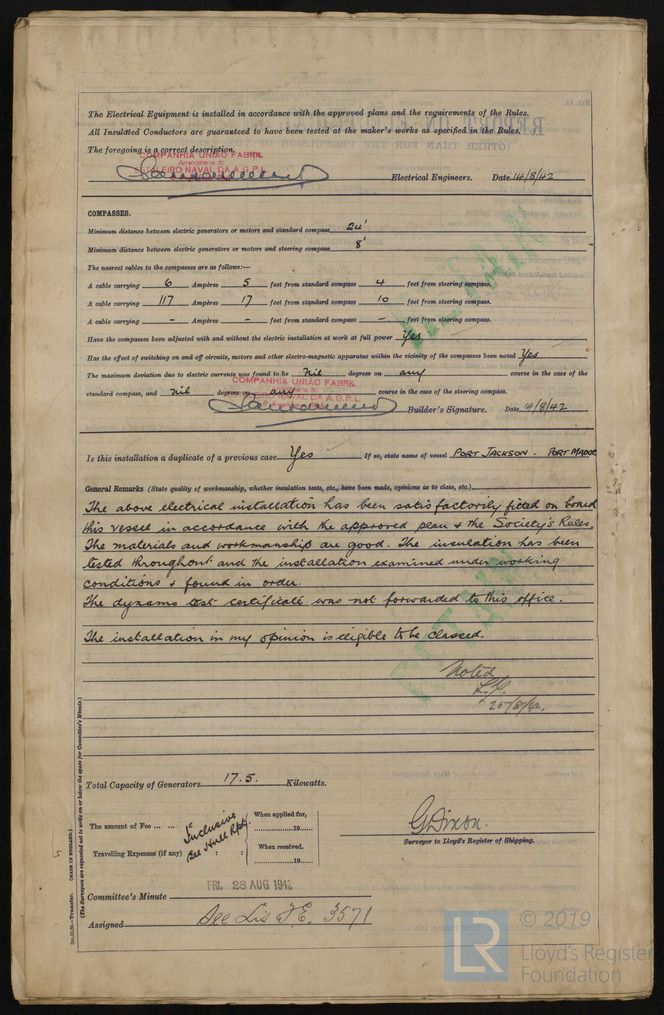 The Electrical Equipment is installed in accordance with the approved plans and the requirements of the Rules.
All Insulated Conductors are guaranteed to have been tested at the maker's works as specified in the Rules.
The foregoing is a correct description.
COMPANHIA UNIÃO FABRIL
Arrendatária do
ESTALEIRO NAVAL DA A.G.P.L.
Electrical Engineers. Date 14/8/42
COMPASSES.
Minimum distance between electric generators or motors and standard compass 24'
Minimum distance between electric generators or motors and steering compass 8'
The nearest cables to the compasses are as follows:—
A cable carrying 6 Ampères 5 feet from standard compass 4 feet from steering compass.
A cable carrying 117 Ampères 17 feet from standard compass 10 feet from steering compass.
A cable carrying - Ampères - feet from standard compass - feet from steering compass.
Have the compasses been adjusted with and without the electric installation at work at full power Yes
Has the effect of switching on and off circuits, motors and other electro-magnetic apparatus within the vicinity of the compasses been noted Yes
The maximum deviation due to electric currents was found to be Nil degrees on any course in the case of the
standard compass, and nil degrees on any course in the case of the steering compass.
COMPANHIA UNIÃO FABRIL
Arrendatária do
ESTALEIRO NAVAL DA A.G.P.L.
Builder's Signature. Date 14/8/42
Is this installation a duplicate of a previous case Yes If so, state name of vessel PORT JACKSON. PORT MADOC
General Remarks (State quality of workmanship, whether insulation tests, etc., have been made, opinions as to class, etc.)
The above electrical installation has been satisfactorily fitted on board
this vessel in accordance with the approved plan & the Society's Rules.
The materials and workmanship are good. The insulation has been
tested throughout and the installation examined under working
conditions & found in order.
The dynamo test certificate was not forwarded to this office.
The installation in my opinion is eligible to be classed.
Noted
Total Capacity of Generators 17.5. Kilowatts.
The amount of Fee ... ... Inclusive
See Hull Rpt.
When applied for,
19
Travelling Expenses (if any)
When received.
19
G Dixon.
Surveyor to Lloyd's Register of Shipping.
FRI. 28 AUG 1942
Committee's Minute
Assigned See Lis F.E. 3571
(MADE IN ENGLAND.)
(The Surveyors are requested not to write on or below the space for Committee's Minute.)
LR © 2019
Lloyd's Register
Foundation